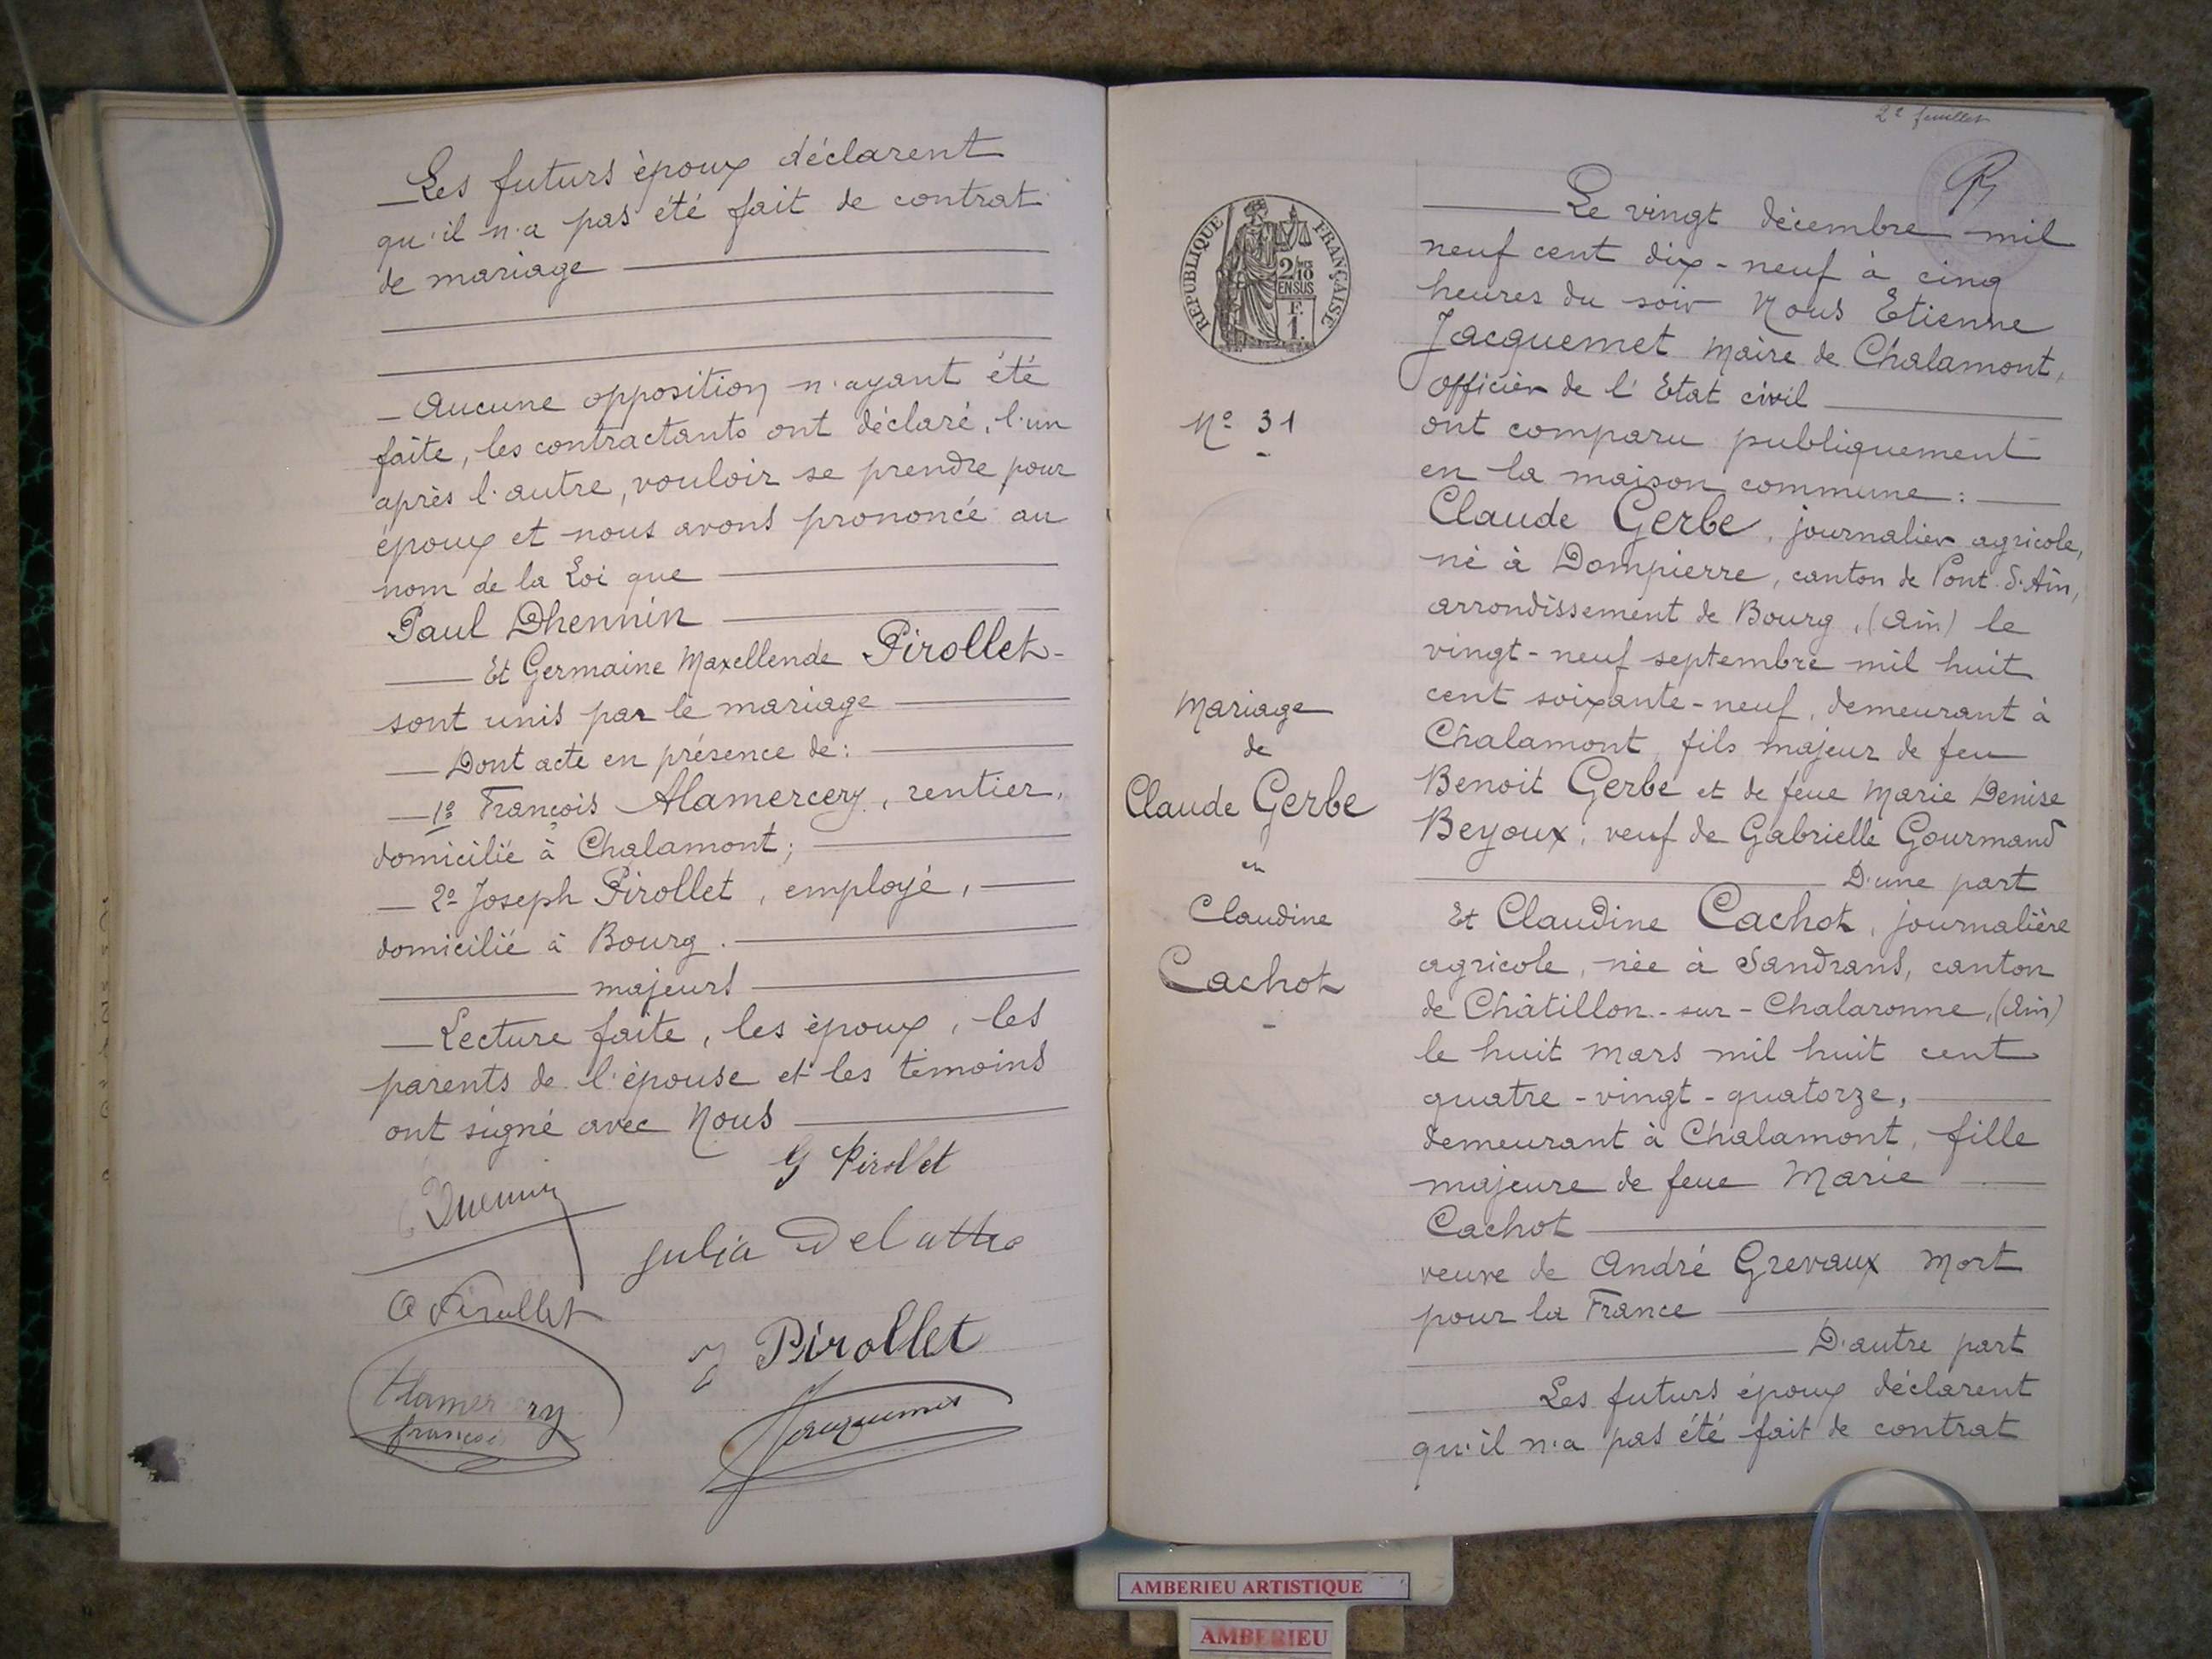 Les futurs époux déclarent
qu'il n'a pas été fait de contrat
de mariage
Aucune opposition n'ayant été
faite, les contractants ont déclaré, l'un
après l'autre, vouloir se prendre pour
époux et nous avons prononcé au
nom de la Loi que
Paul Dhennin
Et Germaine Maxellende Pirollet
sont unis par le mariage
Dont acte en présence de :
1º François Alamercery, rentier,
domicilié à Chalamont ;
2º Joseph Pirollet, employé,
domicilié à Bourg.
majeurs
Lecture faite, les époux, les
parents de l'épouse et les témoins
ont signé avec Nous
G Pirollet
Julia Delattre
Pirollet
J Pirollet
françois
2e feuillet
RÉPUBLIQUE FRANÇAISE
2/10
EN SUS
F.
1.
Nº 31
Mariage
de
Claude Gerbe
et
Claudine
Cachot
Le vingt décembre mil
neuf cent dix-neuf à cinq
heures du soir Nous Etienne
Jacquemet Maire de Chalamont,
officier de l'Etat civil
ont comparu publiquement
en la maison commune :
Claude Gerbe, journalier agricole,
né à Dompierre, canton de Pont-d'Ain,
arrondissement de Bourg, (Ain) le
vingt-neuf septembre mil huit
cent soixante-neuf, demeurant à
Chalamont, fils majeur de feu
Benoit Gerbe et de feue Marie Denise
Beyoux, veuf de Gabrielle Gourmand
D'une part
Et Claudine Cachot, journalière
agricole, née à Sandrans, canton
de Châtillon-sur-Chalaronne, (Ain)
le huit mars mil huit cent
quatre-vingt-quatorze,
demeurant à Chalamont, fille
majeure de feue Marie
Cachot
veuve de André Grevaux Mort
pour la France
D'autre part
Les futurs époux déclarent
qu'il n'a pas été fait de contrat
AMBERIEU ARTISTIQUE
AMBERIEU